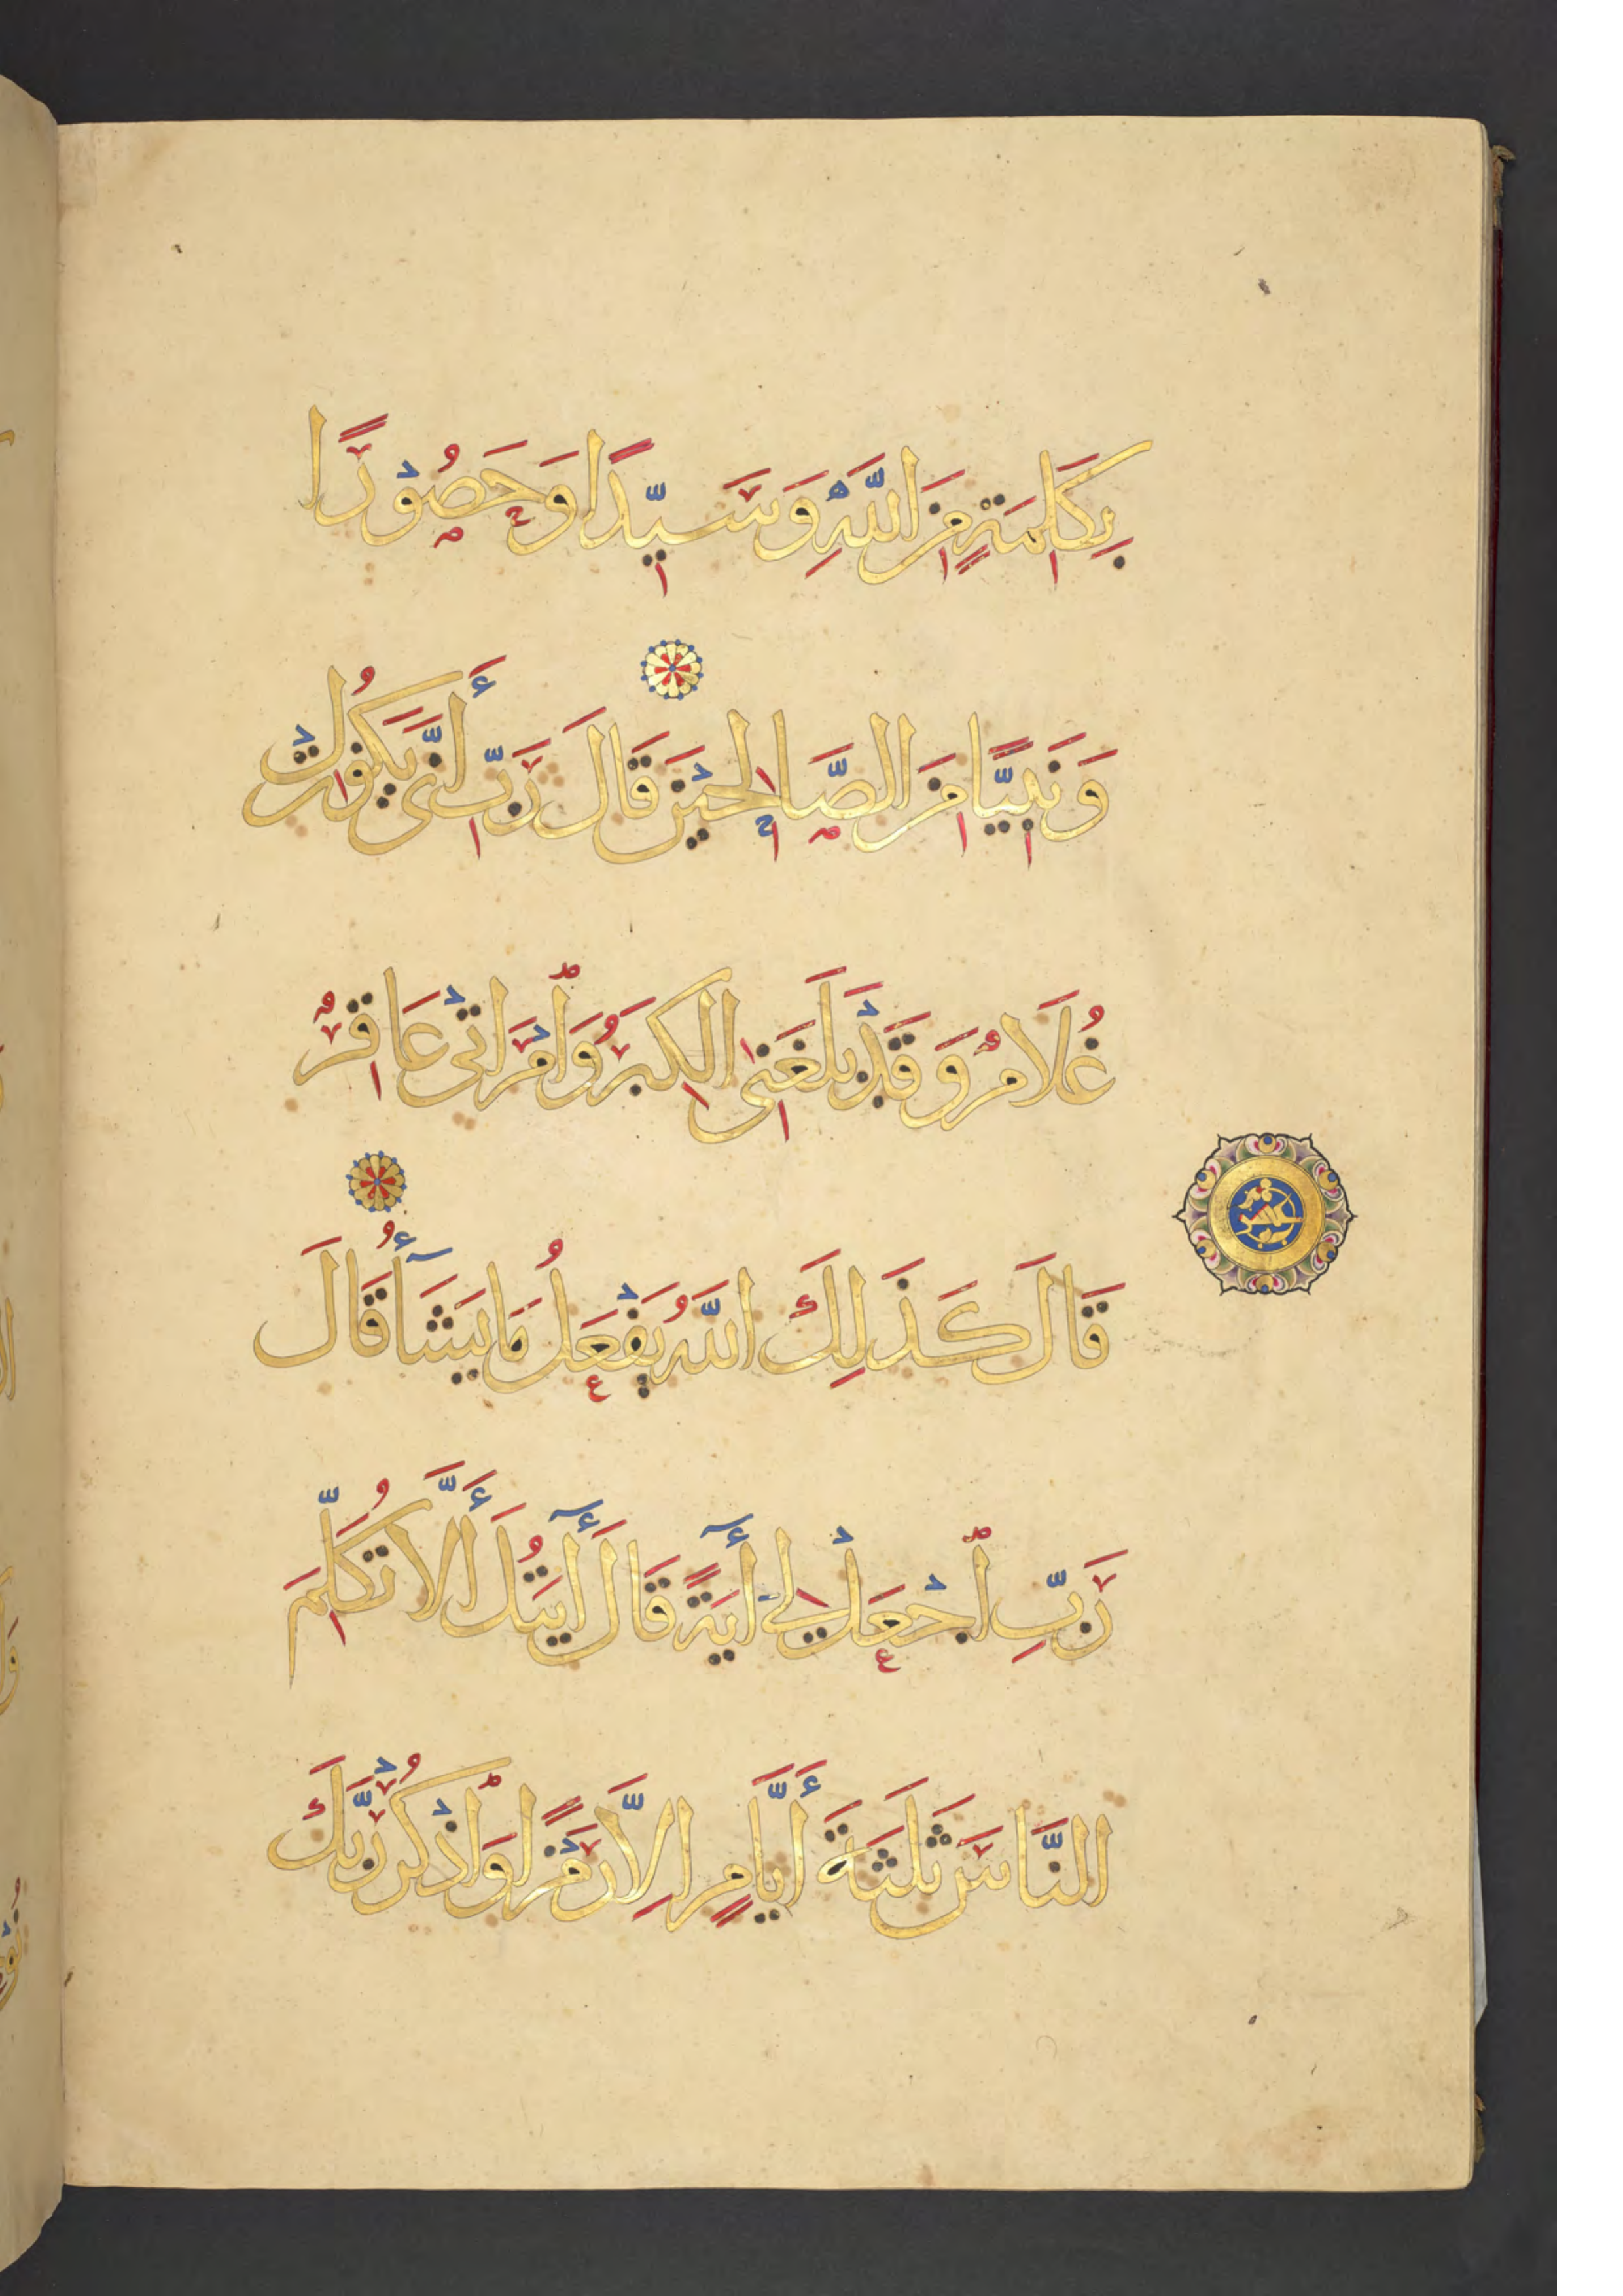 بِكَلِمَةٍ مِنَ اللَّهِ وَسَيِّدًا وَحَصُوْرًا
وَنَبِيًّا مِنَ الصَّالِحِيْنَ قَالَ رَبِّ أَنَّى يَكُونُ لِىْ
غُلَامٌ وَقَدْ بَلَغَنِىَ الْكِبَرُ وَامْرَاَتِىْ عَاقِرٌ
قَالَ كَذَلِكَ اللَّهُ يَفْعَلُ مَا يَشَآءُ قَالَ
رَبِّ اجْعَلْ لِىْ آيَةً قَالَ آيَتُكَ أَلَّا تُكَلِّمَ
النَّاسَ ثَلَثَةَ أَيَّامٍ اِلَّا رَمْزًا وَاذْكُرْ رَبَّكَ